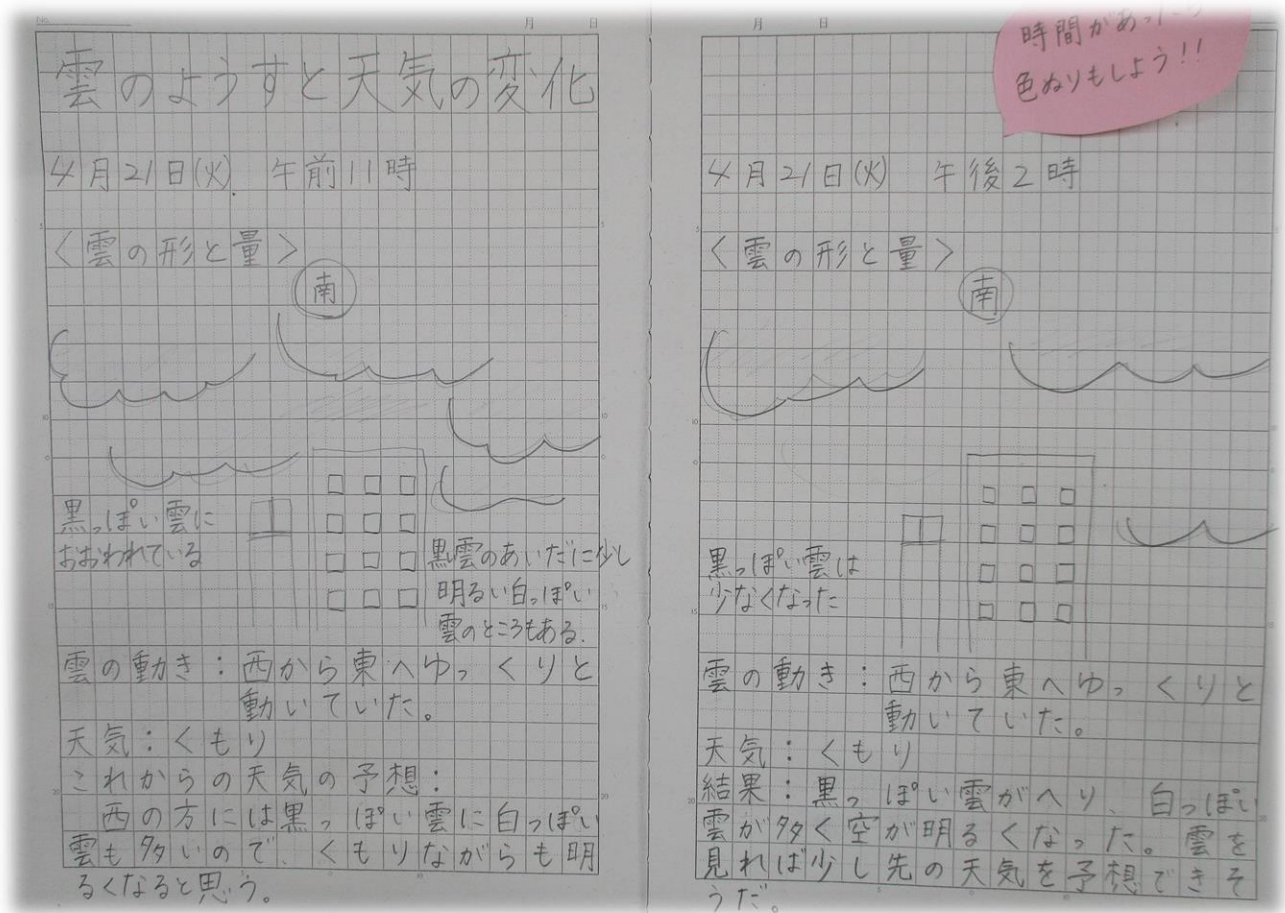 No.
月 日
雲のようすと天気の変化
4月21日(火) 午前11時
〈雲の形と量〉
南
黒っぽい雲に
おおわれている
黒雲のあいだに少し
明るい白っぽい
雲のところもある.
雲の動き:西から東へゆっくりと
動いていた。
天気:くもり
これからの天気の予想:
西の方には黒っぽい雲に白っぽい
雲も多いので、くもりながらも明
るくなると思う。
月 日
時間があったら
色ぬりもしよう!!
4月21日(火) 午後2時
〈雲の形と量〉
南
黒っぽい雲は
少なくなった
雲の動き:西から東へゆっくりと
動いていた。
天気:くもり
結果:黒っぽい雲がへり、白っぽい
雲が多く空が明るくなった。雲を
見れば少し先の天気を予想できそ
うだ。